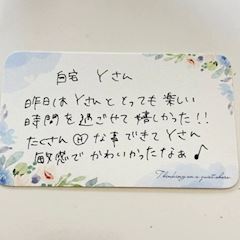 自宅 Yさん
昨日はYさんととっても楽しい
時間を過ごせて嬉しかった!!
たくさんⒽな事できてYさん
敏感でかわいかったなぁ♪
Thinking on a quiet shore